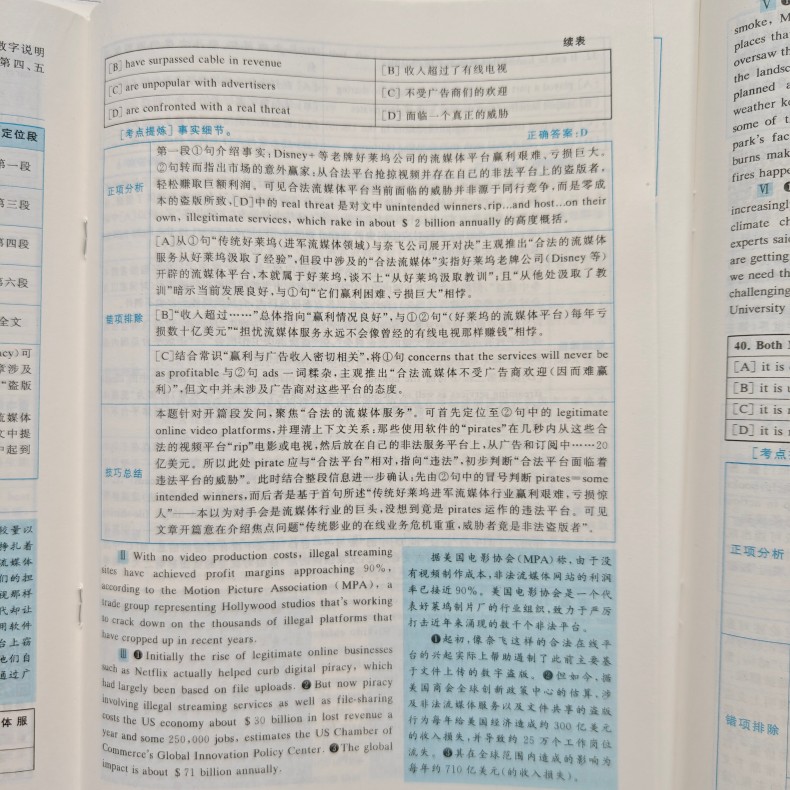 数字说明
第四、五
定位段
第一段
第三段
第四段
第六段
全文
续表
[B] have surpassed cable in revenue
[B] 收入超过了有线电视
[C] are unpopular with advertisers
[C] 不受广告商们的欢迎
[D] are confronted with a real threat
[D] 面临一个真正的威胁
[考点提炼] 事实细节。
正确答案:D
正项分析
第一段①句介绍事实:Disney+等老牌好莱坞公司的流媒体平台赢利艰难、亏损巨大。
②句转而指出市场的意外赢家:从合法平台抢掠视频并存在自己的非法平台上的盗版者,
轻松赚取巨额利润。可见合法流媒体平台当前面临的威胁并非源于同行竞争,而是零成
本的盗版所致,[D]中的 real threat 是对文中 unintended winners…rip…and host…on their
own, illegitimate services, which rake in about $ 2 billion annually的高度概括。
错项排除
[A]从①句“传统好莱坞(进军流媒体领域)与奈飞公司展开对决”主观推出“合法的流媒体
服务从好莱坞汲取了经验”,但段中涉及的“合法流媒体”实指好莱坞老牌公司(Disney 等)
开辟的流媒体平台,本就属于好莱坞,谈不上“从好莱坞汲取教训”;且“从他处汲取了教
训”暗示当前发展良好,与①句“它们赢利困难、亏损巨大”相悖。
[B]“收入超过……”总体指向“赢利情况良好”,与①②句“(好莱坞的流媒体平台)每年亏
损数十亿美元”“担忧流媒体服务永远不会像曾经的有线电视那样赚钱”相悖。
[C]结合常识“赢利与广告收入密切相关”,将①句 concerns that the services will never be
as profitable 与②句 ads 一词糅杂,主观推出“合法流媒体不受广告商欢迎(因而难赢
利)”,但文中并未涉及广告商对这些平台的态度。
技巧总结
本题针对开篇段发问,聚焦“合法的流媒体服务”。可首先定位至②句中的 legitimate
online video platforms,并理清上下文关系:那些使用软件的“pirates”在几秒内从这些合
法的视频平台“rip”电影或电视,然后放在自己的非法服务平台上,从广告和订阅中……20
亿美元。所以此处 pirate 应与“合法平台”相对,指向“违法”,初步判断“合法平台面临着
违法平台的威胁”。此时结合整段信息进一步确认:先由②句中的冒号判断 pirates=some
intended winners,而后者是基于首句所述“传统好莱坞进军流媒体行业赢利艰难,亏损惊
人”——本以为对手会是流媒体行业的巨头,没想到竟是 pirates 运作的违法平台。可见
文章开篇意在介绍焦点问题“传统影业的在线业务危机重重,威胁者竟是非法盗版者”。
Ⅱ With no video production costs, illegal streaming
sites have achieved profit margins approaching 90%,
according to the Motion Picture Association (MPA), a
trade group representing Hollywood studios that's working
to crack down on the thousands of illegal platforms that
have cropped up in recent years.
Ⅲ ❶ Initially the rise of legitimate online businesses
such as Netflix actually helped curb digital piracy, which
had largely been based on file uploads. ❷ But now piracy
involving illegal streaming services as well as file-sharing
costs the US economy about $ 30 billion in lost revenue a
year and some 250,000 jobs, estimates the US Chamber of
Commerce's Global Innovation Policy Center. ❸ The global
impact is about $ 71 billion annually.
据美国电影协会(MPA)称,由于没
有视频制作成本,非法流媒体网站的利润
率已接近90%。美国电影协会是一个代
表好莱坞制片厂的行业组织,致力于严厉
打击近年来涌现的数千个非法平台。
❶起初,像奈飞这样的合法在线平
台的兴起实际上帮助遏制了此前主要基
于文件上传的数字盗版。❷但如今,据
美国商会全球创新政策中心的估算,涉
及非法流媒体服务以及文件共享的盗版
行为每年给美国经济造成约 300 亿美元
的收入损失,并导致约 25 万个工作岗位
流失。❸其在全球范围内造成的影响为
每年约710亿美元(的收入损失)。
smoke, M
places tha
oversaw th
the landsc
planned a
weather ko
some of t
park's fac
burns mak
fires happe
Ⅵ
increasingl
climate ch
experts said
are getting
we need th
challenging
University
40. Both
[A] it is
[B] it is u
[C] it is
[D] it is
[考点
正项分析
错项排除